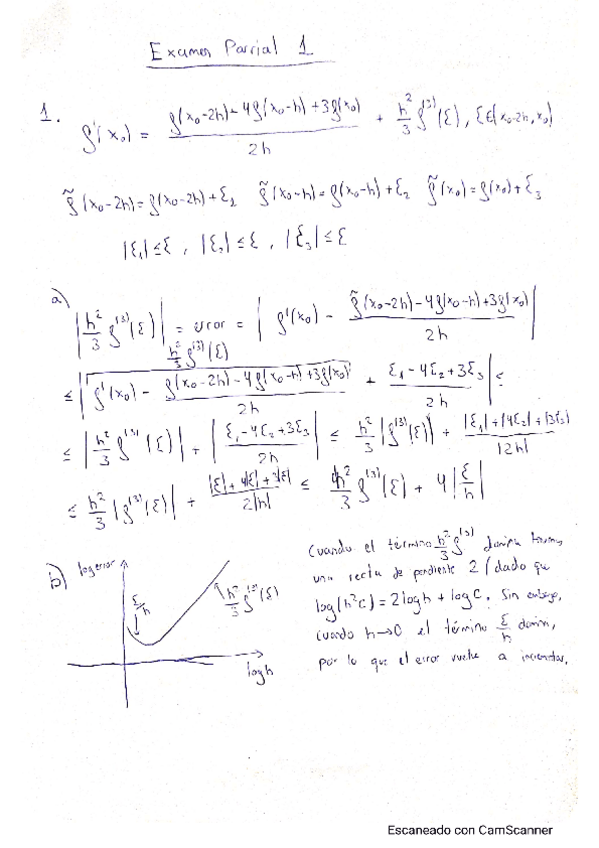 Examen Parcial 1
1. f'(x₀) = (f(x₀-2h) - 4f(x₀-h) + 3f(x₀)) / 2h + h²/3 f⁽³⁾(ξ), ξ∈(x₀-2h, x₀)
f̃(x₀-2h) = f(x₀-2h) + ε₂ f̃(x₀-h) = f(x₀-h) + ε₂ f̃(x₀) = f(x₀) + ε₃
|ε₁| ≤ ε, |ε₂| ≤ ε, |ε₃| ≤ ε
a) |h²/3 f⁽³⁾(ξ)| = error = |f'(x₀) - (f̃(x₀-2h) - 4f(x₀-h) + 3f(x₀)) / 2h|
h²/3 f⁽³⁾(ξ)
≤ |f'(x₀) - (f(x₀-2h) - 4f(x₀-h) + 3f(x₀)) / 2h + (ε₁ - 4ε₂ + 3ε₃) / 2h| ≤
≤ |h²/3 f⁽³⁾(ξ)| + |(ε₁ - 4ε₂ + 3ε₃) / 2h| ≤ h²/3 |f⁽³⁾(ξ)| + (|ε₁| + |4ε₂| + |3ε₃|) / |2h|
≤ h²/3 |f⁽³⁾(ξ)| + (|ε| + 4|ε| + 3|ε|) / 2|h| ≤ h²/3 f⁽³⁾(ξ) + 4|ε/h|
b) log error
ε/h
h²/3 f⁽³⁾(ξ)
log h
Cuando el término h²/3 f⁽³⁾ domina
una recta de pendiente 2 (dado que
log(h²C) = 2 log h + log C. Sin embargo,
cuando h→0 el término ε/h domina,
por lo que el error vuelve a
Escaneado con CamScanner